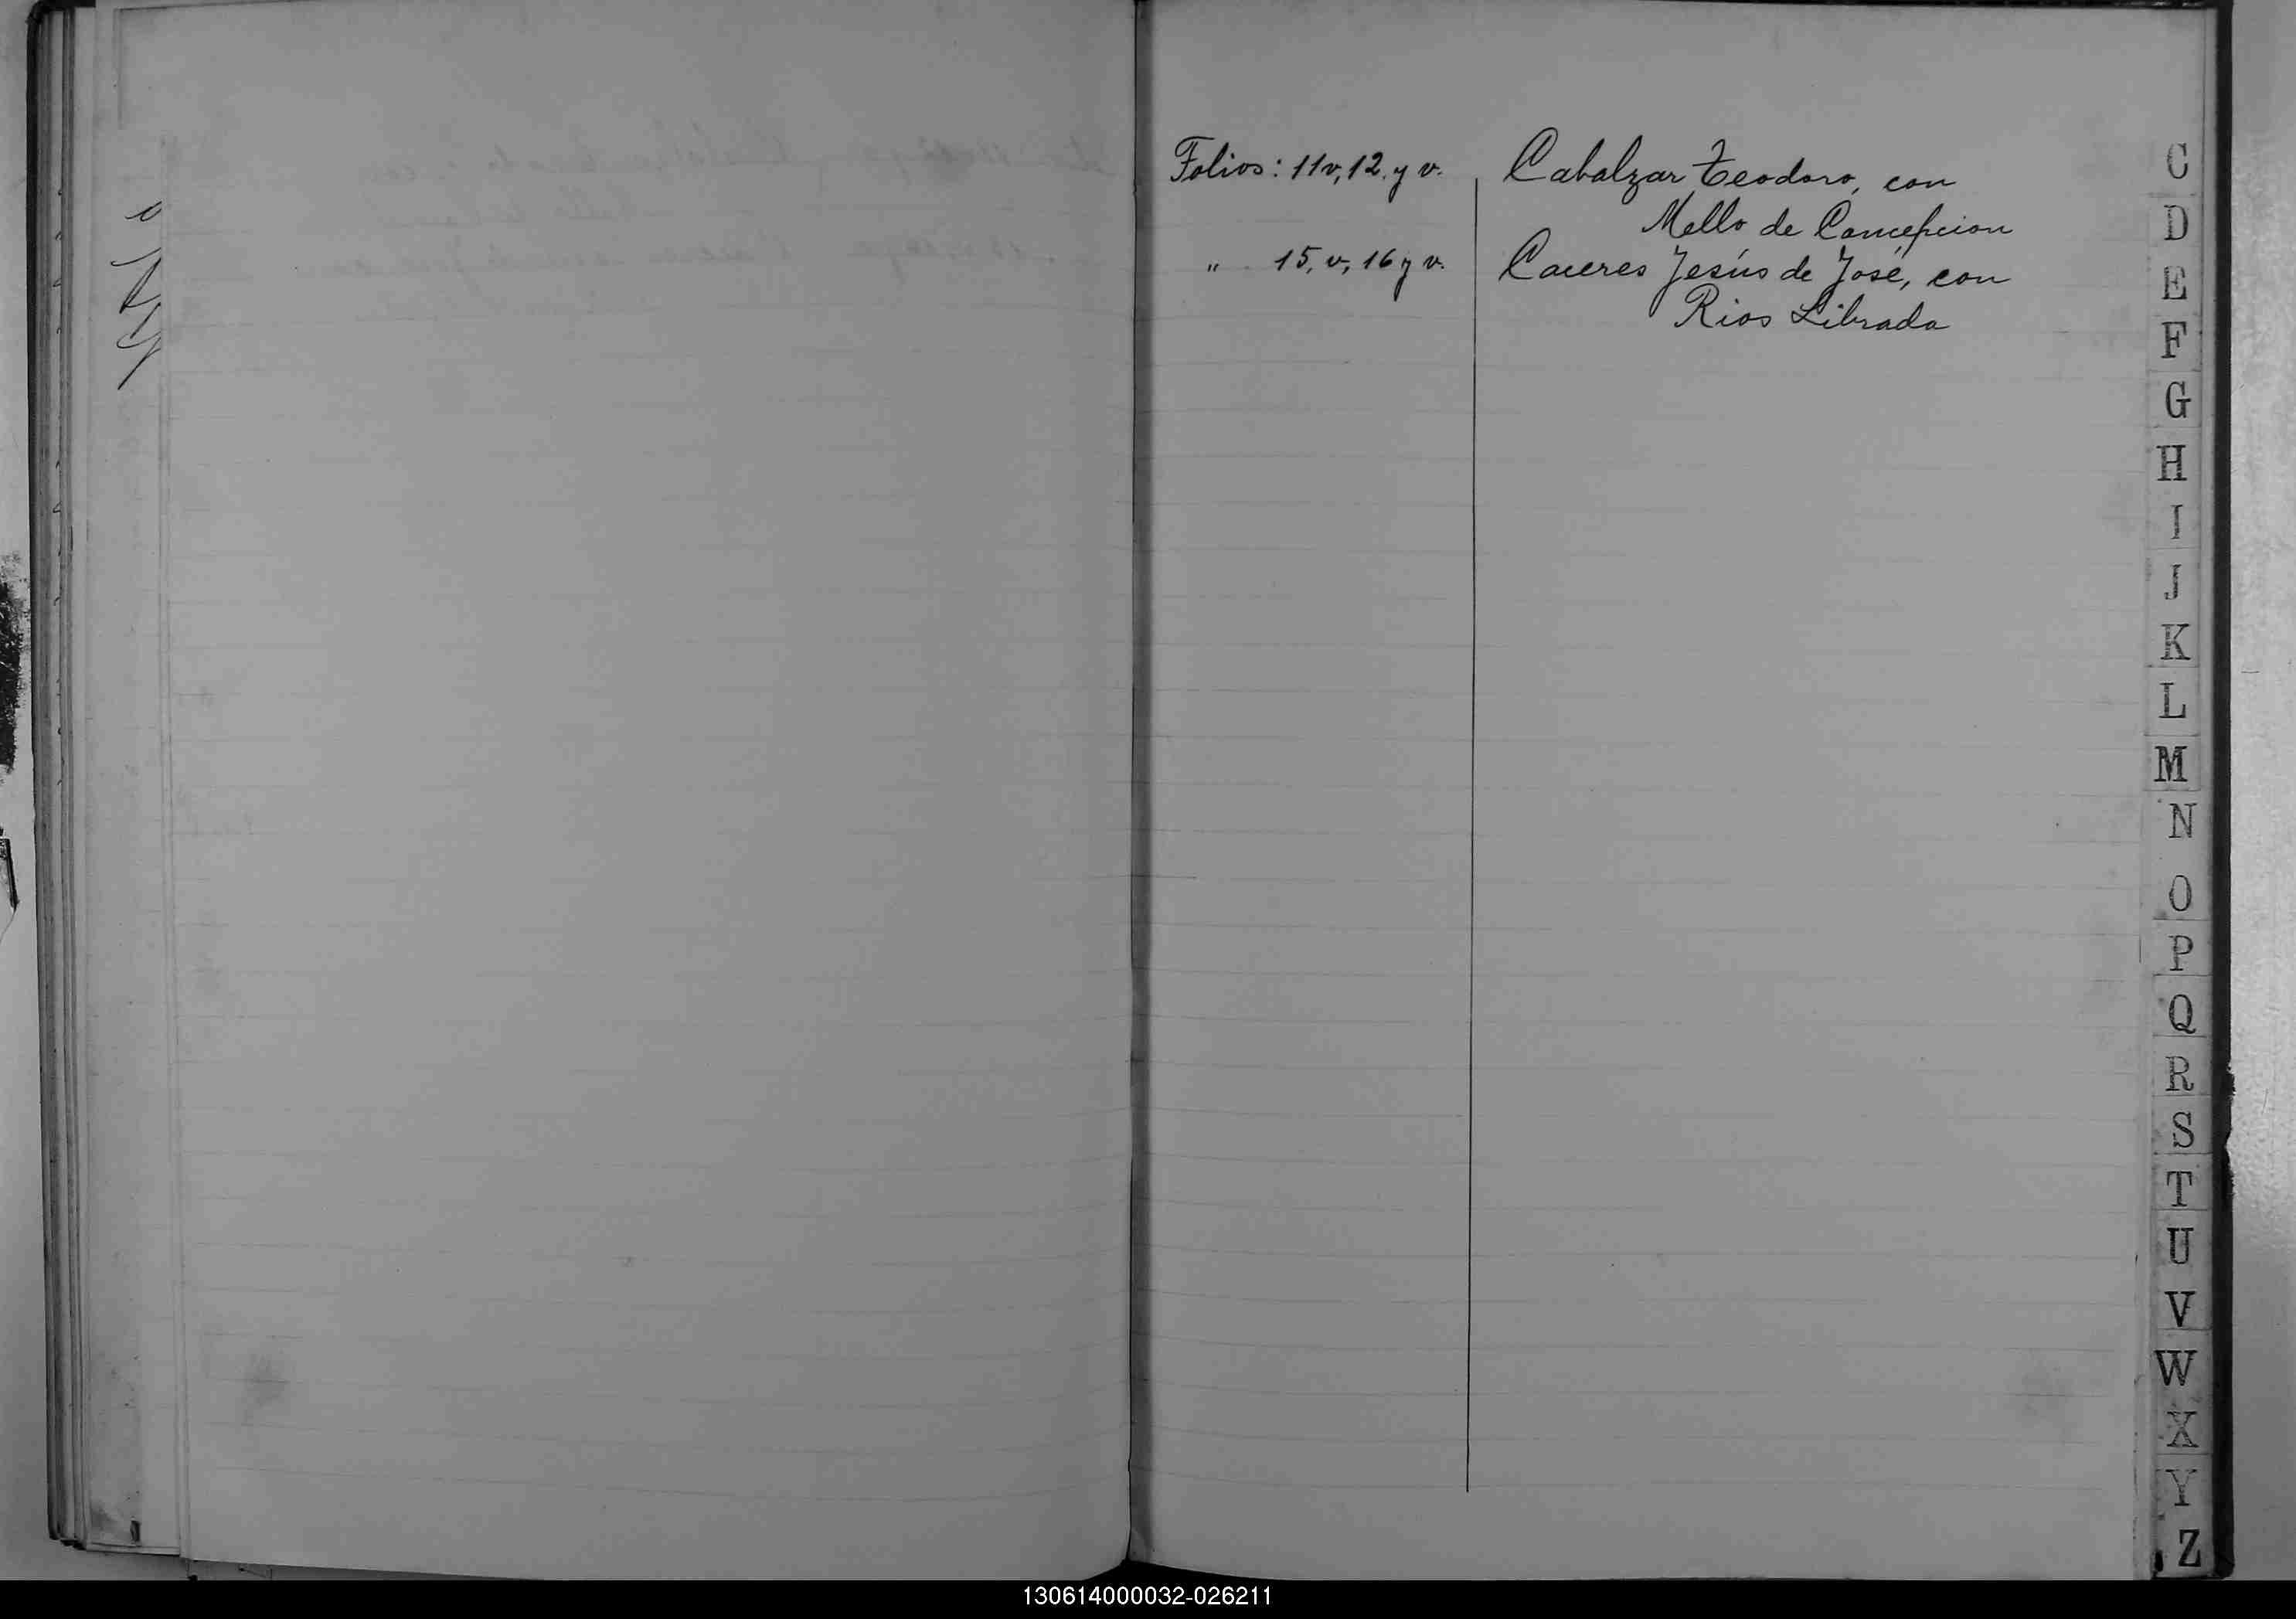 Folios: 11v, 12. y v. Cabalzar Teodoro, con
Mello de Concepcion
" 15, v, 16 y v. Caceres Jesús de José, con
Rios Librada
C
D
E
F
G
H
I
J
K
L
M
N
O
P
Q
R
S
T
U
V
W
X
Y
Z
130614000032-026211